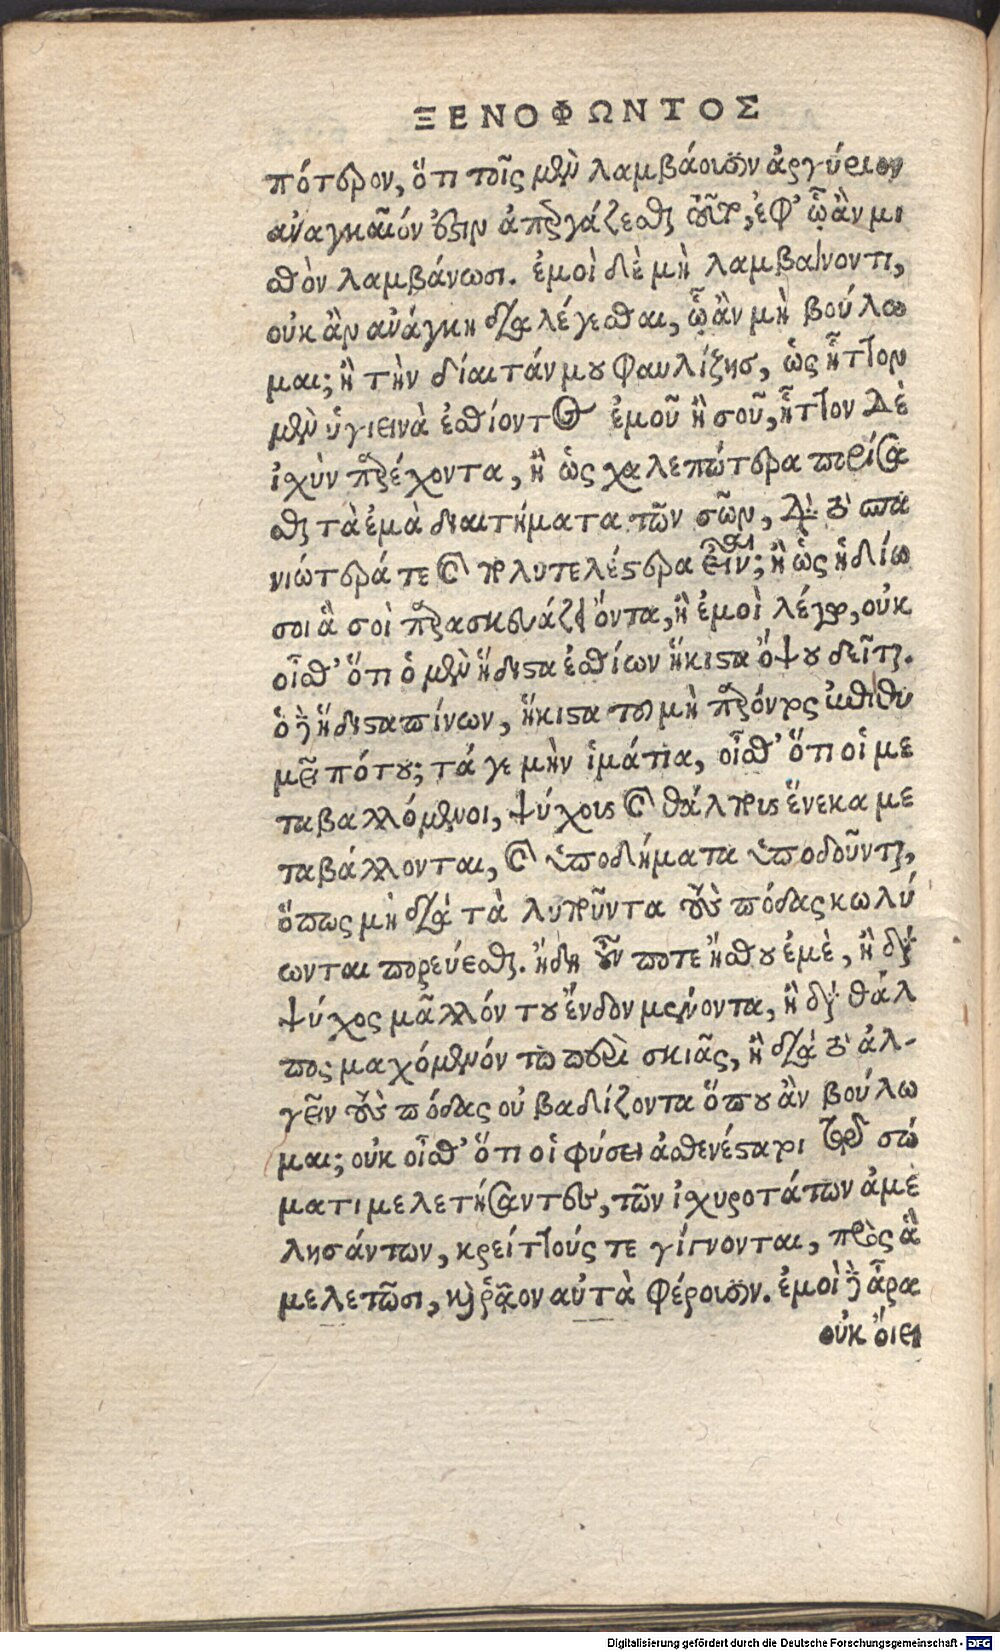 ΞΕΝΟΦΩΝΤΟΣ
πότερον, ὅτι τοῖς μὲν λαμβάουσιν ἀργύριον
ἀναγκαῖόν ἐστιν ἀπεργάζεσθαι τοῦτο, ἐφ' ᾧ ἂν μι
σθὸν λαμβάνωσι. ἐμοὶ δὲ μὴ λαμβαίνοντι,
οὐκ ἂν ἀνάγκη διαλέγεσθαι, ᾧ ἂν μὴ βούλω
μαι; ἢ τὴν δίαιτάν μου φαυλίζῃς, ὡς ἧττον
μὲν ὑγιεινὰ ἐσθίοντος ἐμοῦ ἢ σοῦ, ἧττον δὲ
ἰχὺν παρέχοντα, ἢ ὡς χαλεπώτερα πορίσα
σθαι τὰ ἐμὰ διαιτήματα τῶν σῶν, διὰ τὸ σπα
νιώτερά τε καὶ πολυτελέστερα εἶναι; ἢ ὡς ἡδίω
σοι ἃ σοὶ παρασκευάζῃ ὄντα, ἢ ἐμοὶ λέγω, οὐκ
οἶσθ' ὅτι ὁ μὲν ἥδιστα ἐσθίων ἥκιστα ὄψου δεῖται.
ὁ δὲ ἥδιστα πίνων, ἥκιστα τοῦ μὴ παρόντος ἐπιθυ
μεῖ πότου; τά γε μὴν ἱμάτια, οἶσθ' ὅτι οἱ με
ταβαλλόμενοι, ψύχους καὶ θάλπους ἕνεκα με
ταβάλλονται, καὶ ὑποδήματα ὑποδοῦνται,
ὅπως μὴ διὰ τὰ λυποῦντα τοὺς πόδας κωλύ
ωνται πορεύεσθαι. ἤδη οὖν ποτε ᾔσθου ἐμὲ, ἢ διὰ
ψύχος μᾶλλόν του ἔνδον μένοντα, ἢ διὰ θάλ
πος μαχόμενόν τῳ περὶ σκιᾶς, ἢ διὰ τὸ ἀλ-
γεῖν τοὺς πόδας οὐ βαδίζοντα ὅπου ἂν βούλω
μαι; οὐκ οἶσθ' ὅτι οἱ φύσει ἀσθενέστατοι τῷ σώ
ματι μελετήσαντες, τῶν ἰχυροτάτων ἀμε
λησάντων, κρείττους τε γίγνονται, πρὸς ἃ
μελετῶσι, καὶ ῥᾷον αὐτὰ φέρουσιν. ἐμοὶ δὲ ἆρα
οὐκ ὄιει